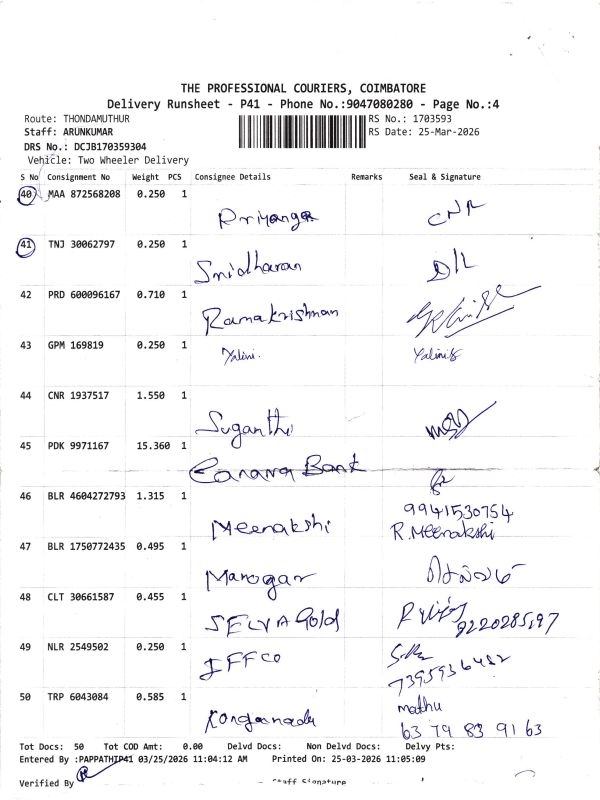 THE PROFESSIONAL COURIERS, COIMBATORE
Delivery Runsheet - P41 - Phone No.:9047080280 - Page No.:4
Route: THONDAMUTHUR RS No.: 1703593
Staff: ARUNKUMAR RS Date: 25-Mar-2026
DRS No.: DCJB170359304
Vehicle: Two Wheeler Delivery
S No Consignment No Weight PCS Consignee Details Remarks Seal & Signature
40 MAA 872568208 0.250 1
Priyanga
41 TNJ 30062797 0.250 1
Sridharan
42 PRD 600096167 0.710 1
Ramakrishnan
43 GPM 169819 0.250 1
Yalini. Yalini
44 CNR 1937517 1.550 1
Suganthi
45 PDK 9971167 15.360 1
Canara Bank
46 BLR 4604272793 1.315 1
9941530754
Meenakshi R.Meenakshi
47 BLR 1750772435 0.495 1
Manogar
48 CLT 30661587 0.455 1
SELVA Gold
49 NLR 2549502 0.250 1
IFFCO
50 TRP 6043084 0.585 1
mathu
63 79 83 91 63
Tot Docs: 50 Tot COD Amt: 0.00 Delvd Docs: Non Delvd Docs: Delvy Pts:
Entered By :PAPPATHIP41 03/25/2026 11:04:12 AM Printed On: 25-03-2026 11:05:09
Verified By Staff Signature